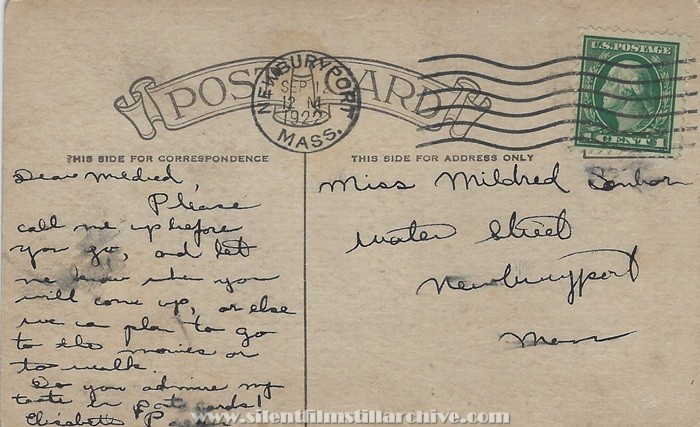 POST CARD
NEWBURYPORT
SEP 1
12 M
1922
MASS.
U.S. POSTAGE
1 CENT 1
THIS SIDE FOR CORRESPONDENCE
THIS SIDE FOR ADDRESS ONLY
Dear Mildred,
Please
call me up before
you go, and let
me know when you
will come up, or else
we ca plan to go
to the movies or
to walk.
Do you admire my
taste in post cards!
Elizabeth P
Miss Mildred
Water Street
Newburyport
Mass
www.silentfilmstillarchive.com